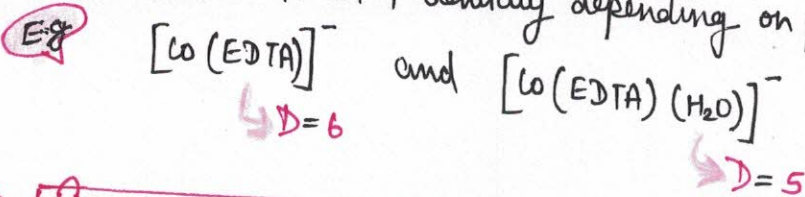 depending on
E.g [Co(EDTA)]⁻ and [Co(EDTA)(H₂O)]⁻
↳ D=6 ↳ D=5